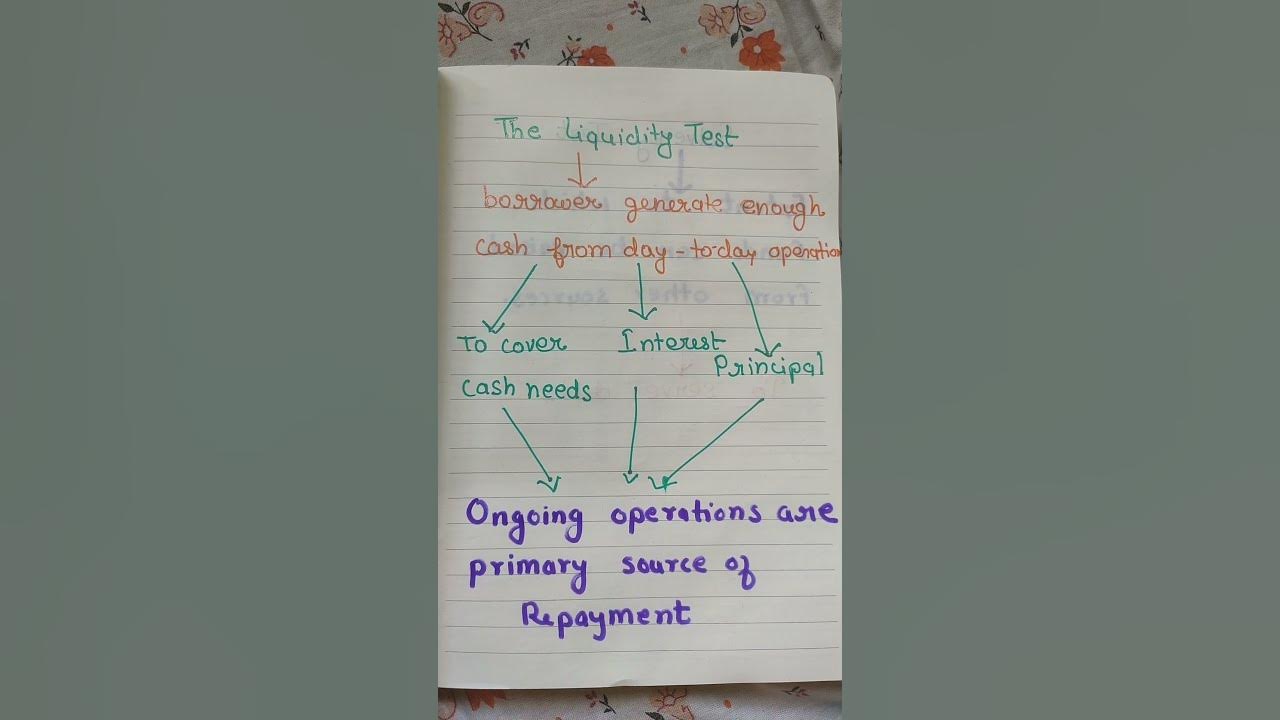 The Liquidity Test
borrower generate enough
cash from day-to-day operation
To cover Interest
Principal
cash needs
Ongoing operations are
primary source of
Repayment